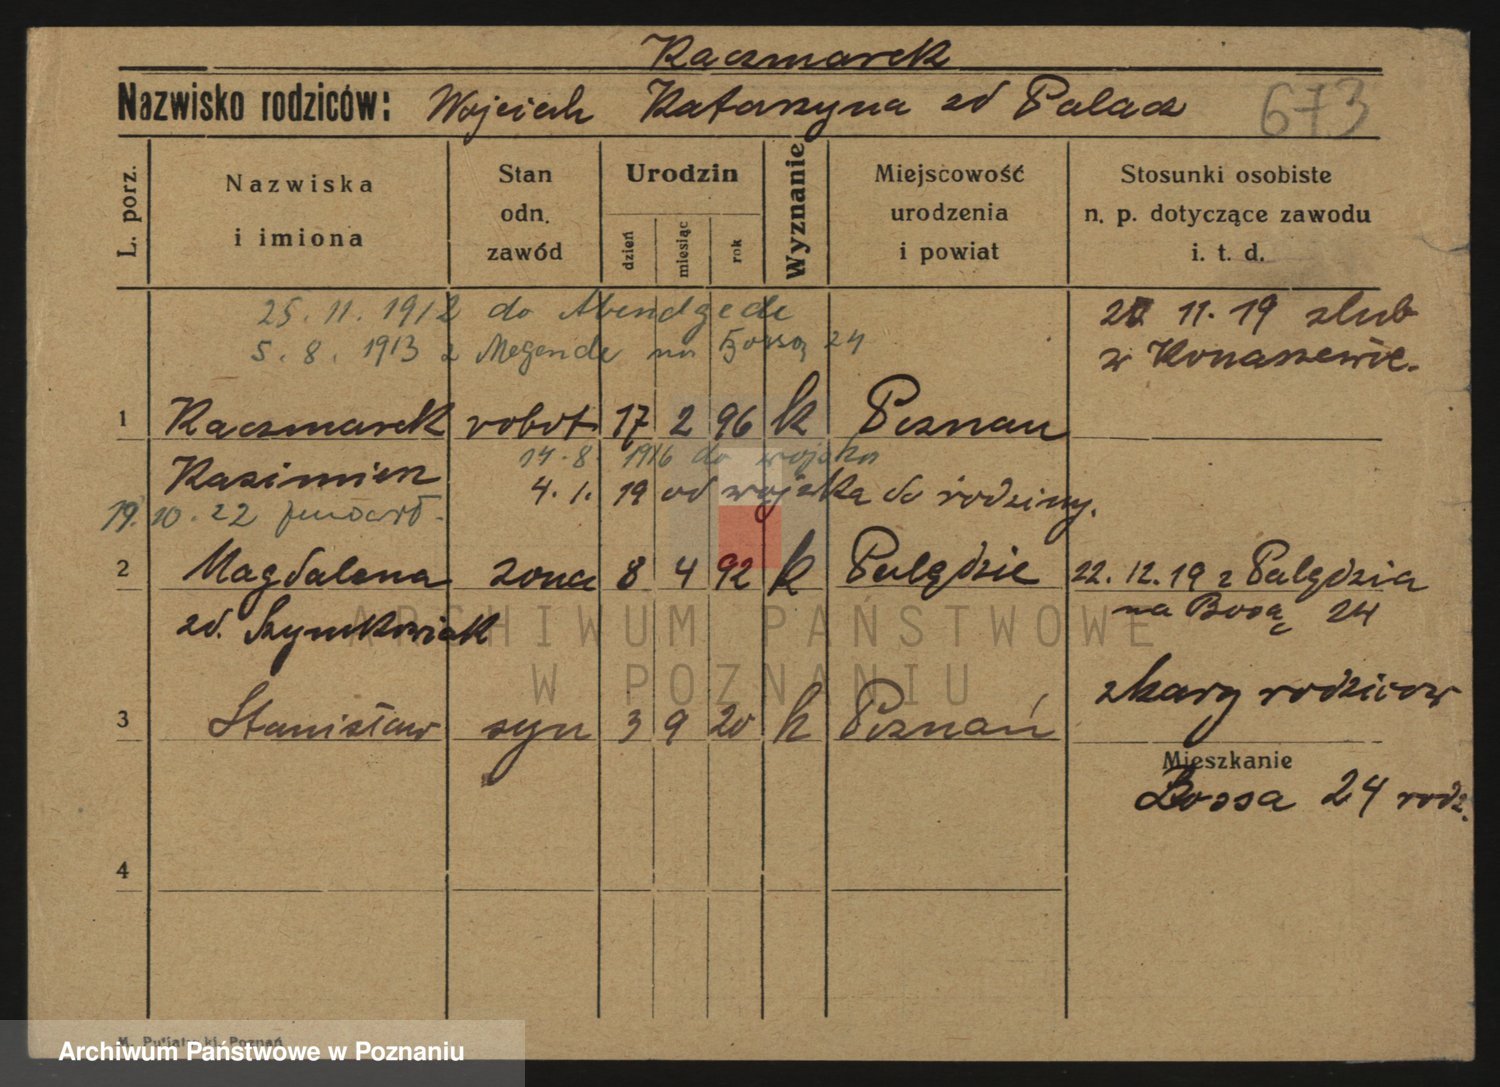 Kaczmarek
Nazwisko rodziców: Wojciech Katarzyna zd Palacz 673
L. porz.
Nazwiska
i imiona
Stan
odn.
zawód
Urodzin
dzień
miesiąc
rok
Wyznanie
Miejscowość
urodzenia
i powiat
Stosunki osobiste
n. p. dotyczące zawodu
i. t. d.
25. 11. 1912 do
11. 19 slub
5. 8. 1913 z na 24
w
1 Kaczmarek robot 17 2 96 k Poznan
14. 8. 1916 do wojska
Kazimierz 4. 1. 19 od wojska do rodziny.
19. 10. 22
2 Magdalena zona 8 4 92 k Palędzie 22. 12. 19 z Palędzia
na Bosą 24
zd. Szymkowiak
z kary rodzicow
3 Stanisław syn 3 9 20 k Poznań
Mieszkanie
Bossa 24 rodz.
4
ARCHIWUM PAŃSTWOWE
W POZNANIU
Archiwum Państwowe w Poznaniu